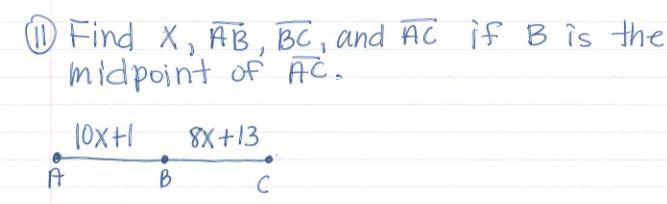 ⑪ Find X, A͞B, B͞C, and A͞C if B is the
midpoint of A͞C.
10x+1 8x+13
A B C